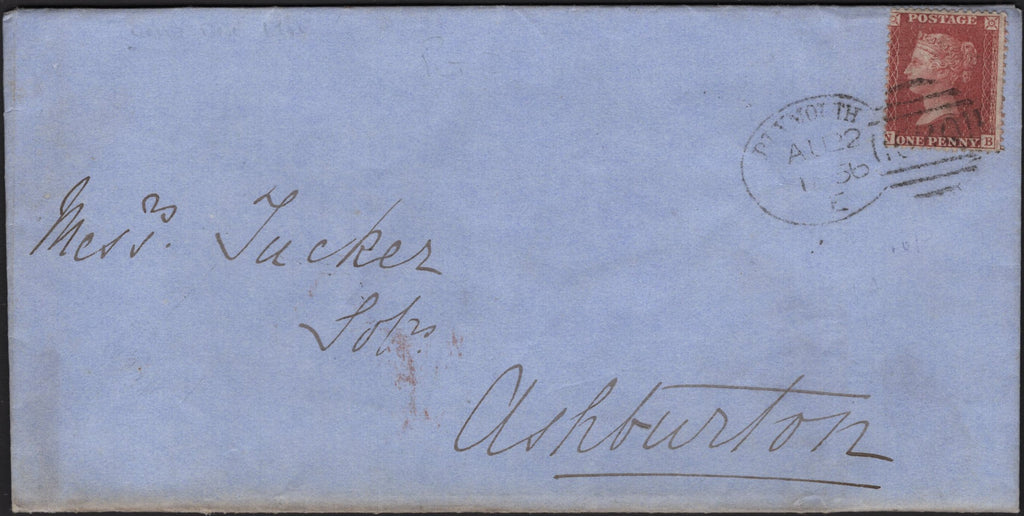 POSTAGE
ONE PENNY
N B
PLYMOUTH
AU 22
Messrs. Tucker
Solrs
Ashburton